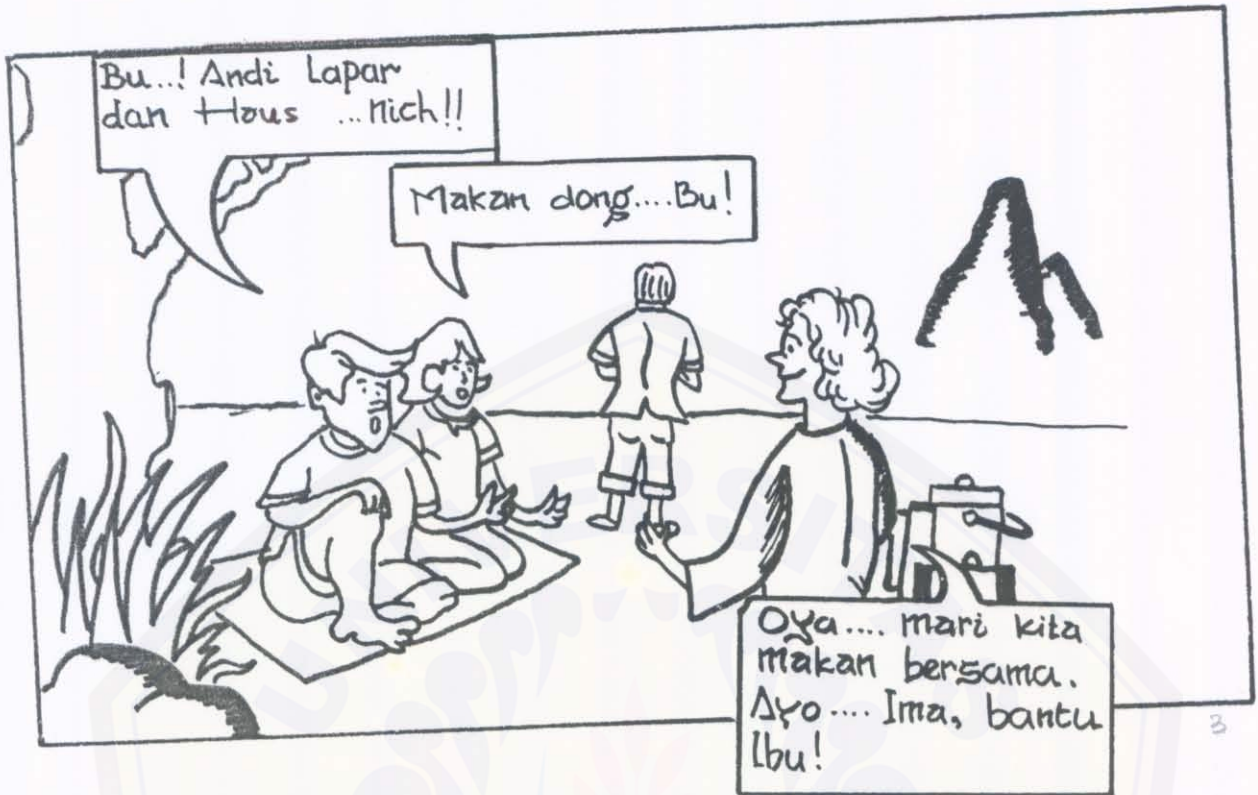 Bu...! Andi Lapar
dan Haus ...nich!!
Makan dong....Bu!
Oya.... mari kita
makan bersama.
Ayo.... Ima, bantu
Ibu!
3
UNIVERSITAS